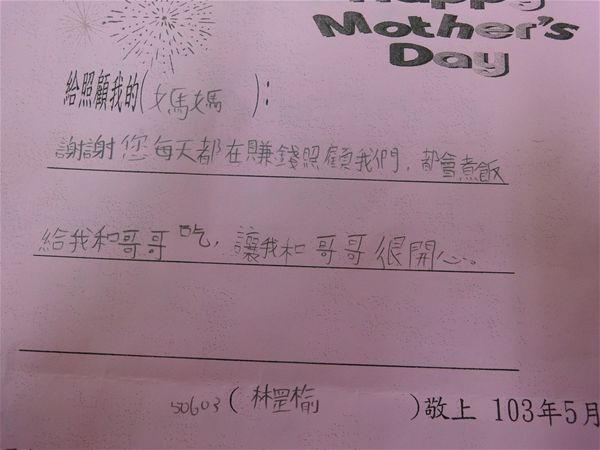 Happy
Mother's
Day
給照顧我的(媽媽):
謝謝您每天都在賺錢照顧我們，都會煮飯
給我和哥哥吃，讓我和哥哥很開心。
50603(林罡榆)敬上 103年5月